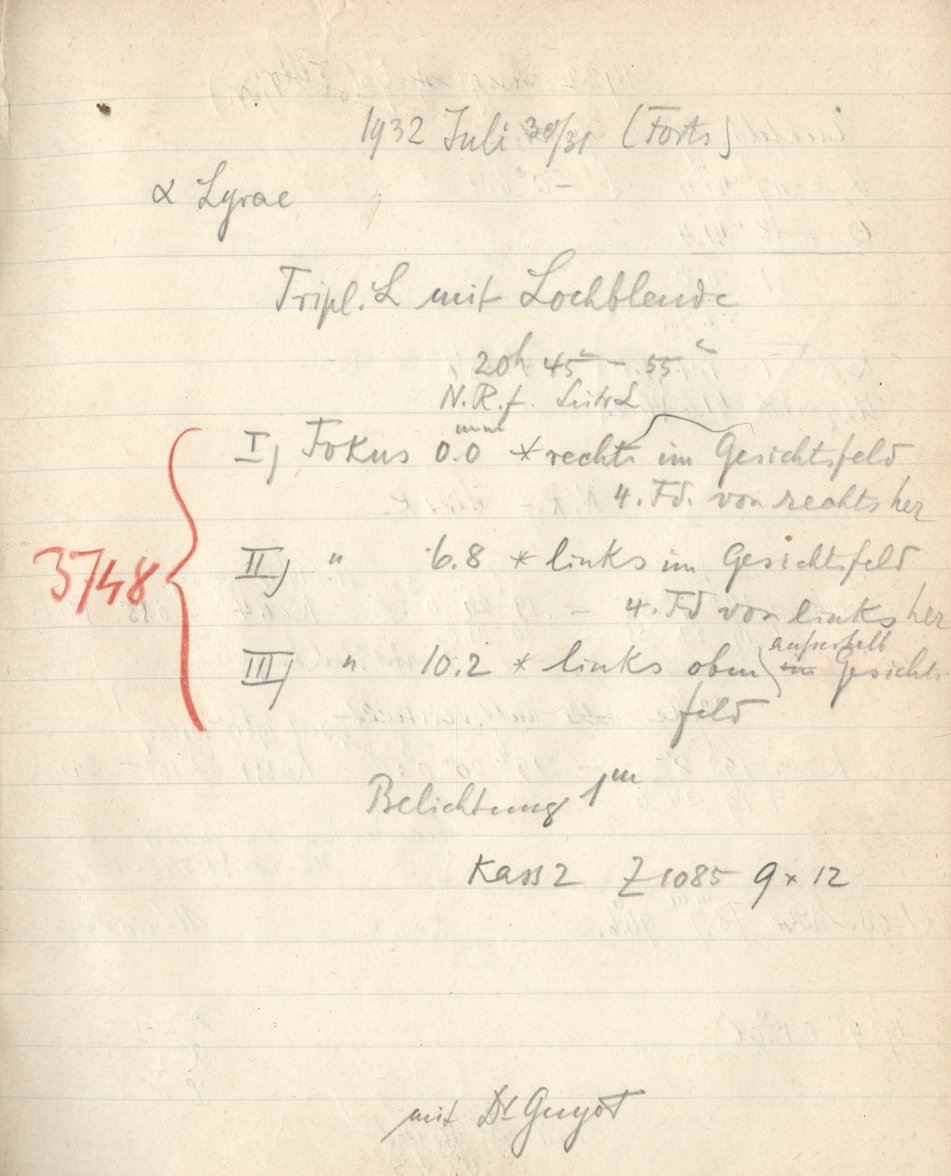 1932 Juli 30/31 (Forts)
α Lyrae
Tripl. L mit Lochblende
20h 45 – 55
N.R.f. Leitr L
I) Fokus 0.0 mm * rechts im Gesichtsfeld
4. Fd. von rechts her
3748
II) " 6.8 * links im Gesichtsfeld
4. Fd von links her
außerhalb
III) " 10.2 * links oben im Gesichts
feld
Belichtung 1m
Kass 2 Z 1085 9 x 12
mit Dr Guyot